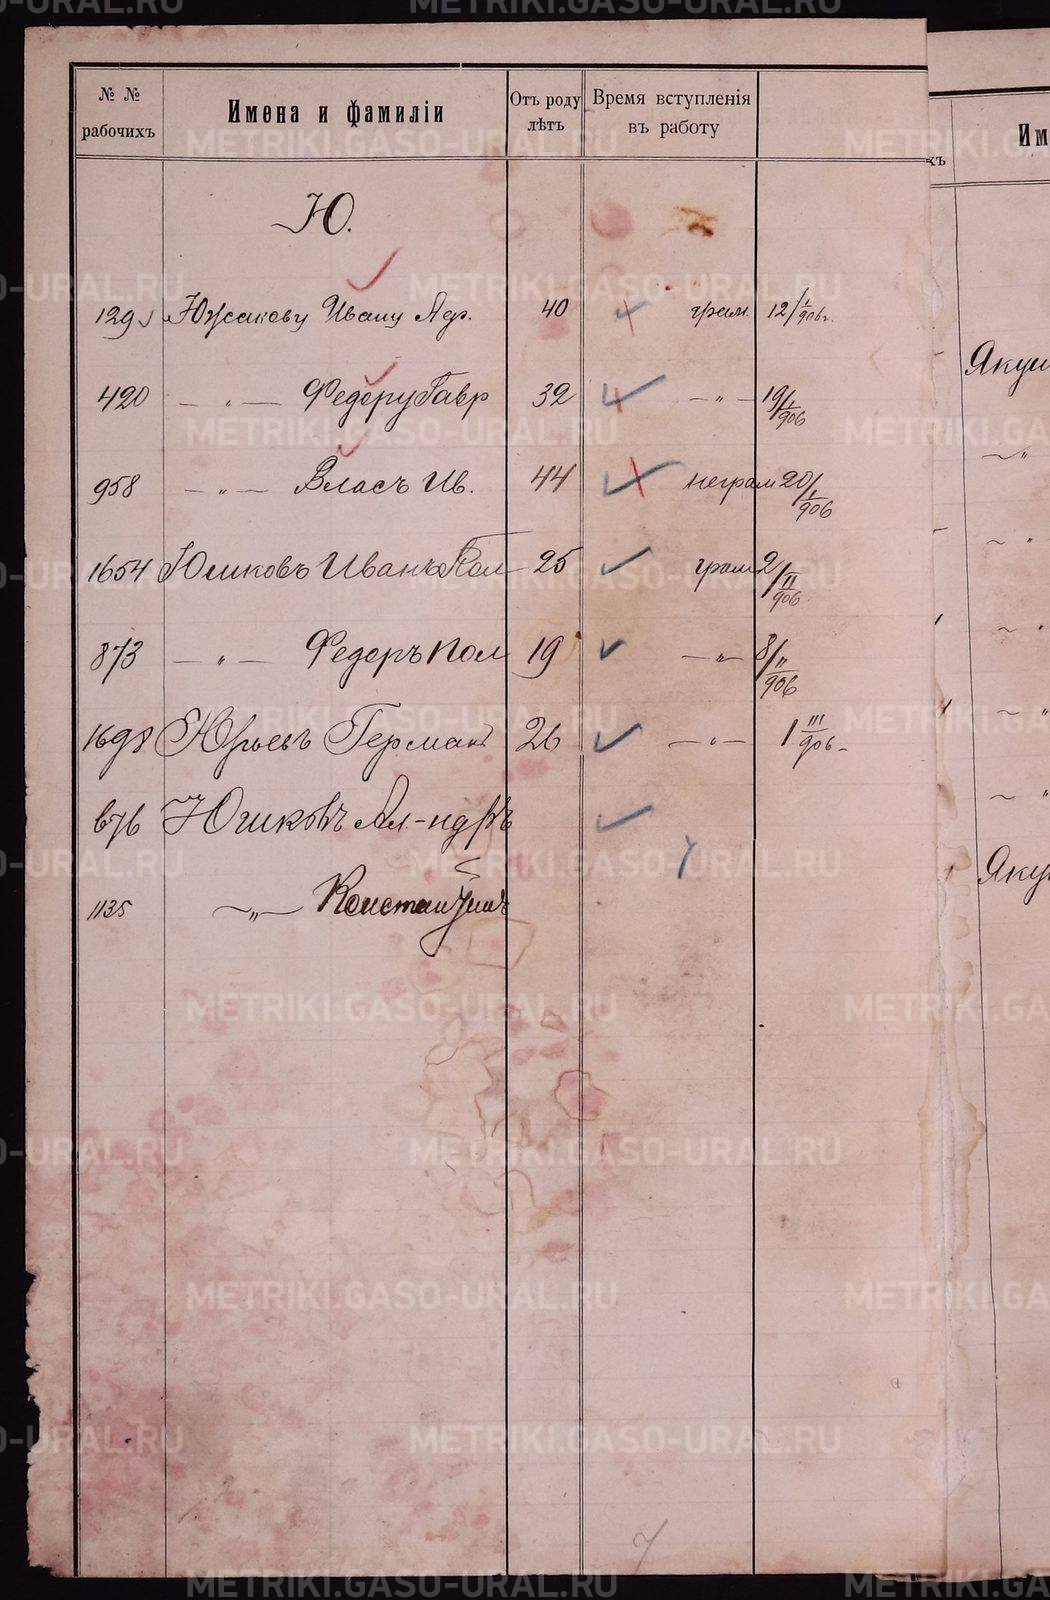 № № рабочихъ | Имена и фамиліи | Отъ роду лѣтъ | Время вступленія въ работу
Ю.
129 Южакову Ивану Адр. 40 грам. 12/I 906 г.
420 — „ — Федеру Гавр 32 — „ — 19/I 906
958 — „ — Власъ Ив. 44 неграм 20/I 906
1654 Юшковъ Иванъ Пол 25 грам 2/II 906
873 — „ — Федеръ Пол 19 — „ — 8/II 906
1698 Юрьевъ Германъ 26 — „ — 1 III 906 –
676 Юшковъ Ал-ндръ
1135 — „ — Константинъ
хъ
Им
Якуш
Якуш
METRIKI.GASO-URAL.RU